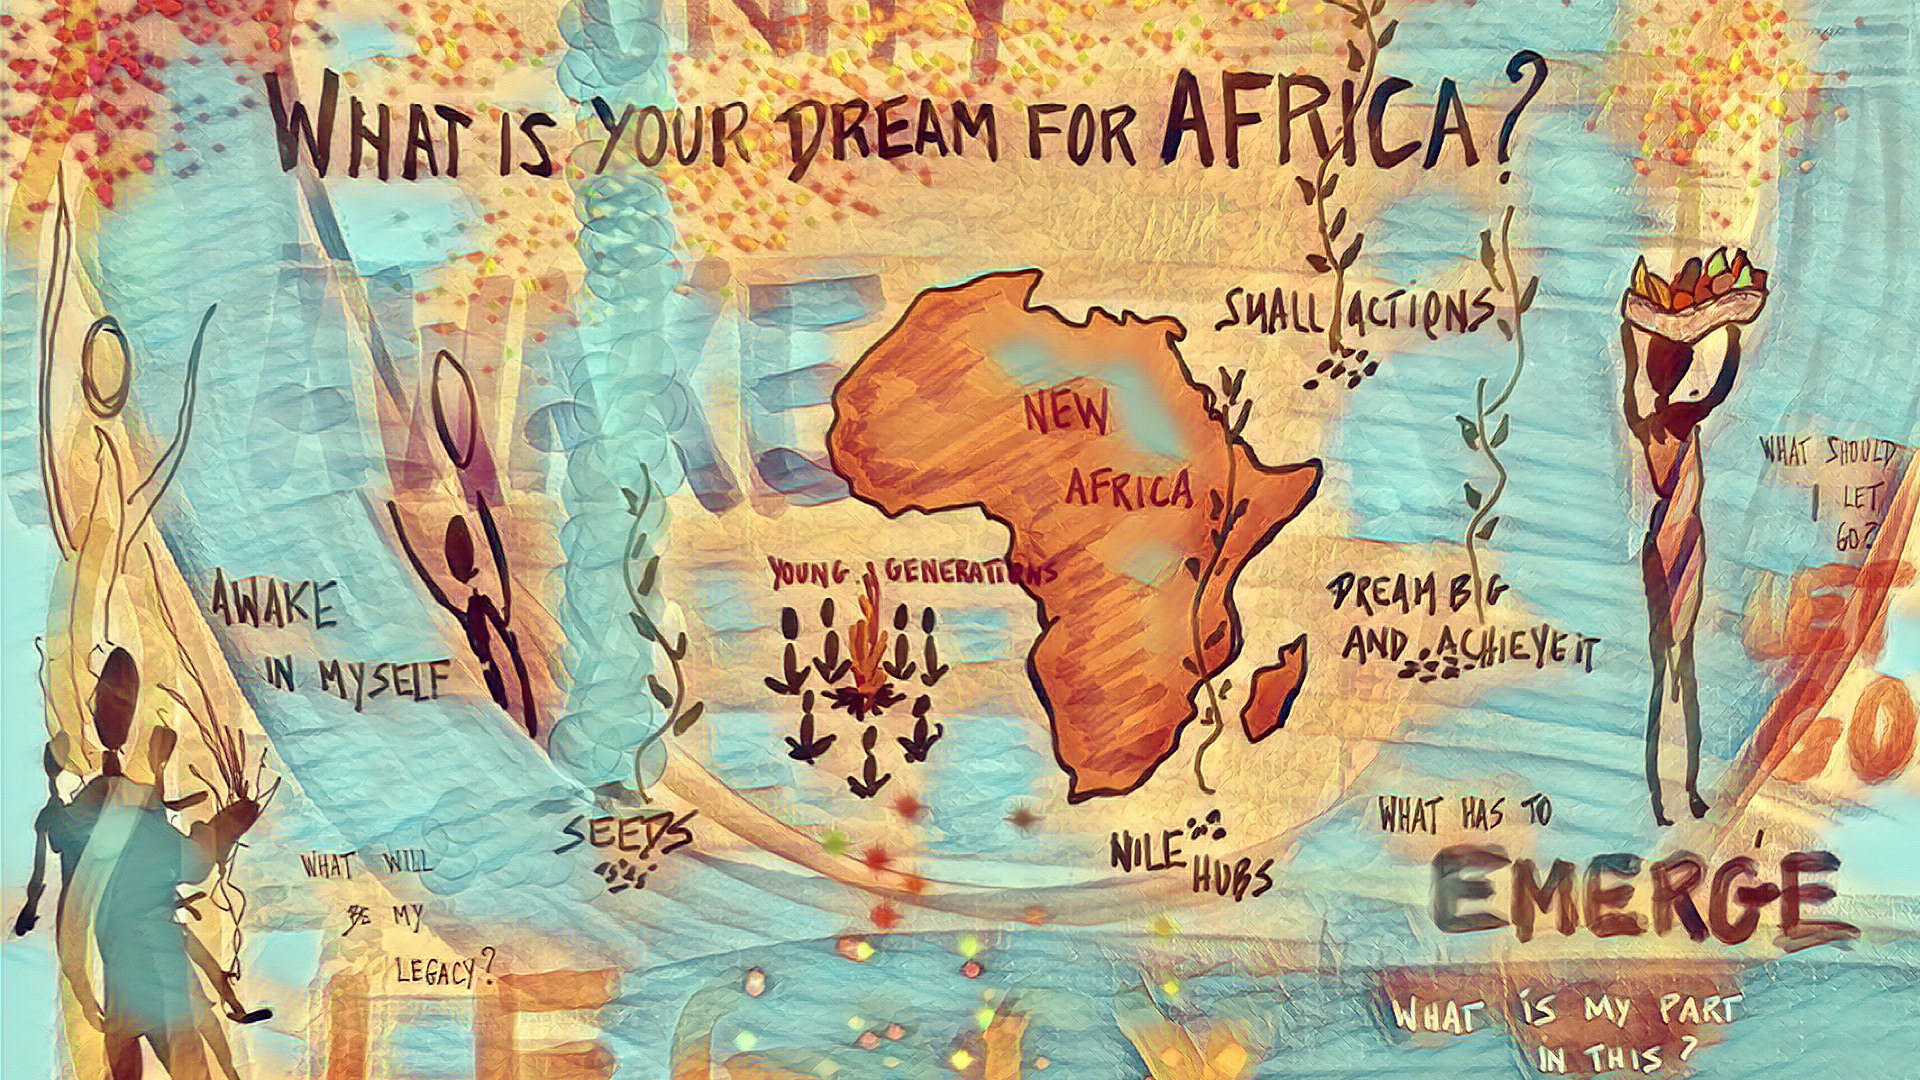 WHAT IS YOUR DREAM FOR AFRICA?
SMALL ACTIONS
NEW
AFRICA
WHAT SHOULD
I LET
GO?
YOUNG GENERATIONS
AWAKE
IN MYSELF
DREAM BIG
AND ACHIEVE IT
LET
GO
SEEDS
NILE
HUBS
WHAT HAS TO
EMERGE
WHAT WILL
BE MY
LEGACY?
WHAT IS MY PART
IN THIS?
LEGACY